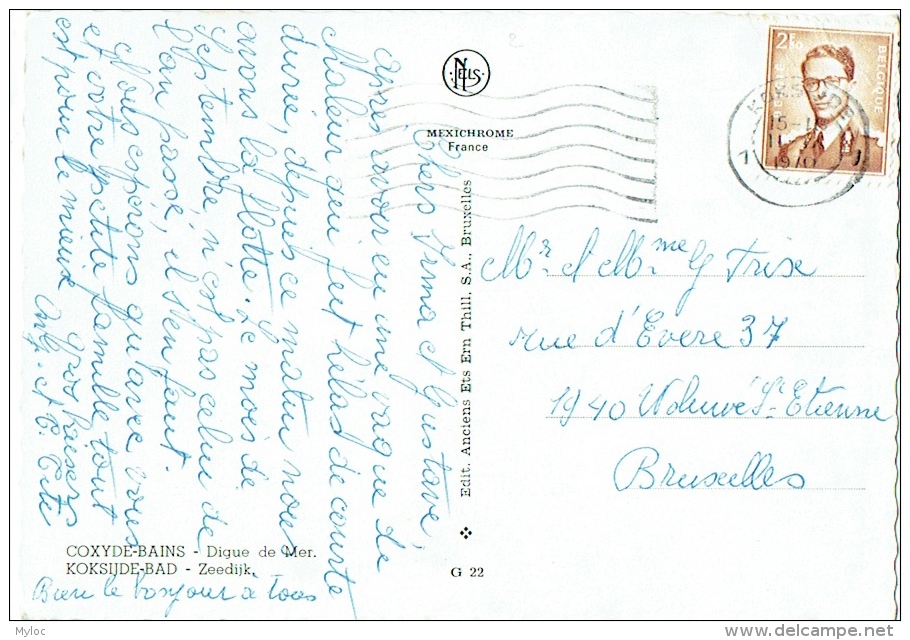 Chers Irma et Gustave,
après avoir eu une vague de
chaleur qui fut hélas de courte
durée, depuis ce matin nous
avons la flotte. Le mois de
Septembre n'est pas celui de
l'an passé, et s'en faut.
Nous espérons qu'avec vous
et votre petite famille tout
est pour le mieux
Gros baisers
Bien le bonjour à tous
COXYDE-BAINS - Digue de Mer.
KOKSIJDE-BAD - Zeedijk.
NELS
MEXICHROME
France
Edit. Anciens Ets Ern Thill, S.A., Bruxelles
G 22
2F50
BELGIE
BELGIQUE
KOKSIJDE
15-1
1970
1
Mr et Mme G Frise
rue d'Evere 37
1940 Woluwé St-Etienne
Bruxelles
Myloc
delcampe.net